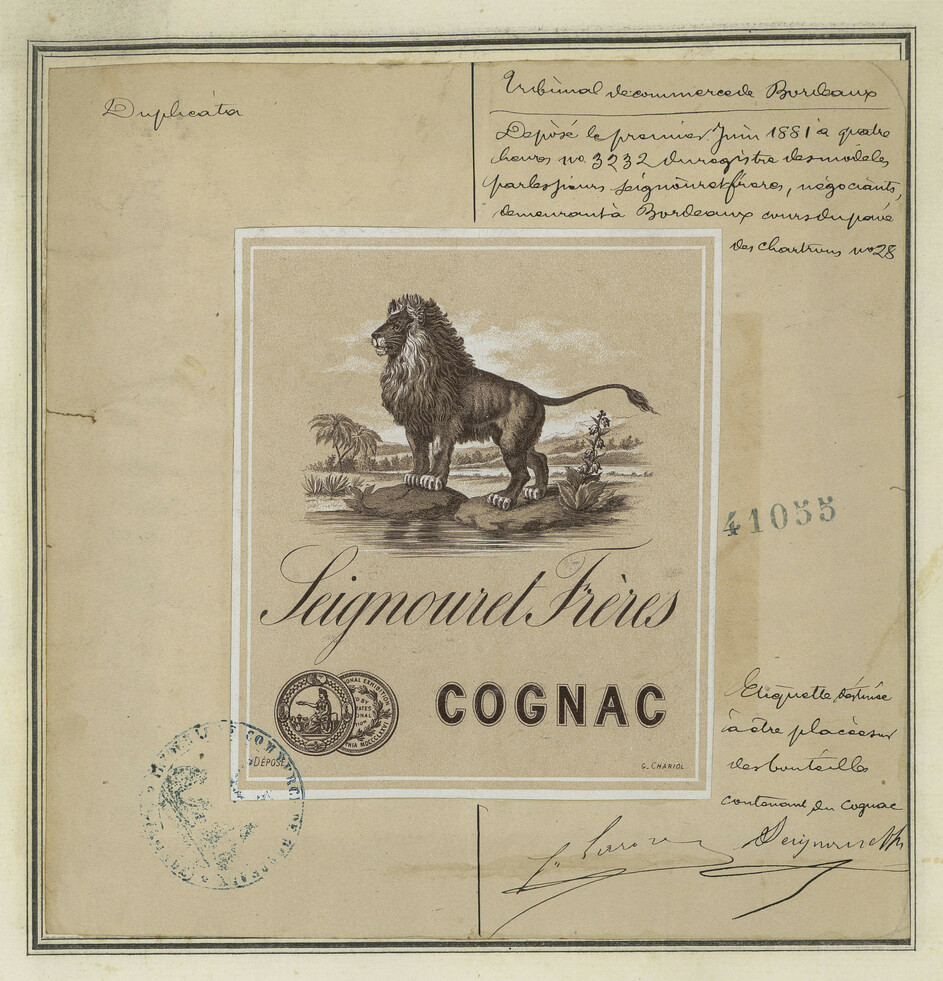 Duplicata
Tribunal de commerce de Bordeaux
Déposé le premier Juin 1881 à quatre
heures no 3232 du registre des modèles
par les sieurs Seignouret frères, négociants,
demeurant à Bordeaux cours du pavé
des chartrons no 28
41055
Seignouret Frères
ONAL EXHIBITION
COGNAC
DÉPOSÉ
G. CHARIOL
Etiquette destinée
à être placée sur
des bouteilles
contenant du cognac
Seignouret